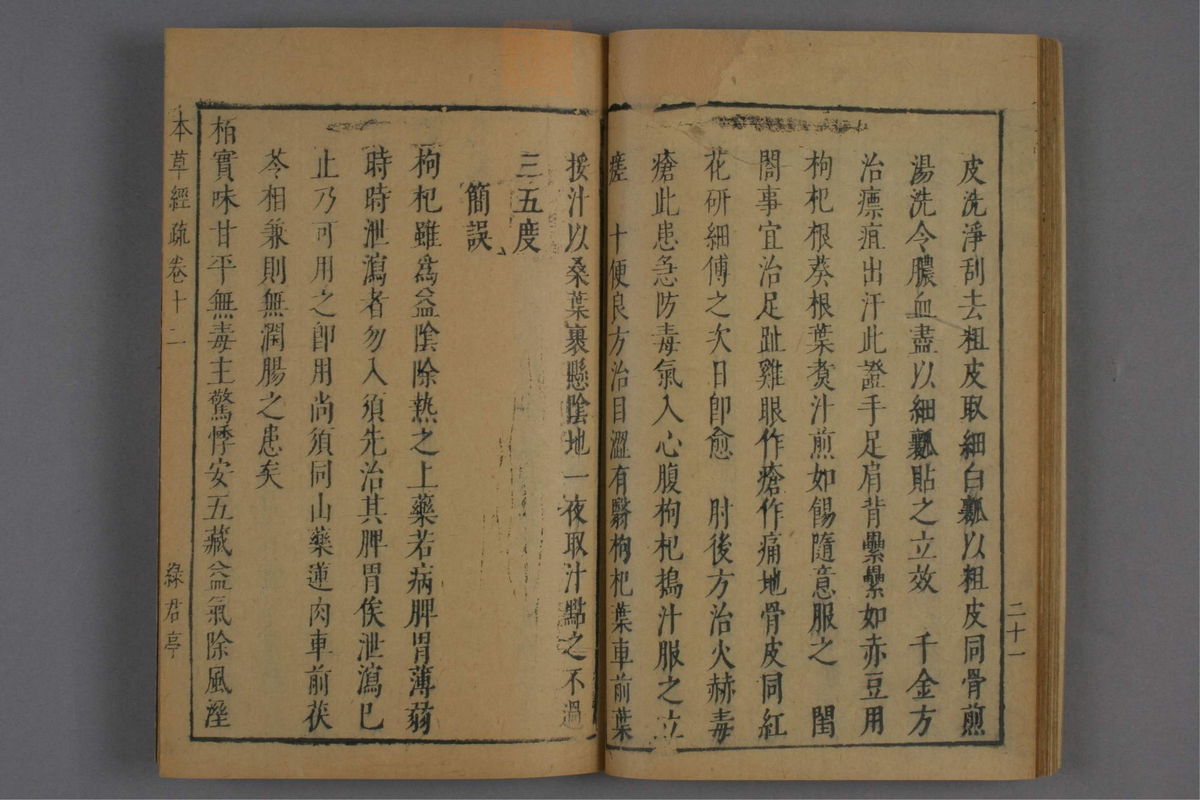 皮洗淨刮去粗皮取細白瓤以粗皮同骨煎
湯洗令膿血盡以細瓤貼之立效　千金方
治瘭疽出汗此證手足肩背纍纍如赤豆用
枸杞根葵根葉煑汁煎如餳隨意服之　閨
閤事宜治足趾雞眼作瘡作痛地骨皮同紅
花研細傅之次日卽愈　肘後方治火赫毒
瘡此患急防毒氣入心腹枸杞搗汁服之立
瘥　十便良方治目澀有翳枸杞葉車前葉
二十一
挼汁以桑葉裹懸陰地一夜取汁點之不過
三五度
簡誤
枸杞雖爲益陰除熱之上藥若病脾胃薄弱
時時泄瀉者勿入須先治其脾胃俟泄瀉已
止乃可用之卽用尚須同山藥蓮肉車前茯
苓相兼則無潤腸之患矣
栢實味甘平無毒主驚悸安五藏益氣除風溼
本草經疏卷十二
綠君亭